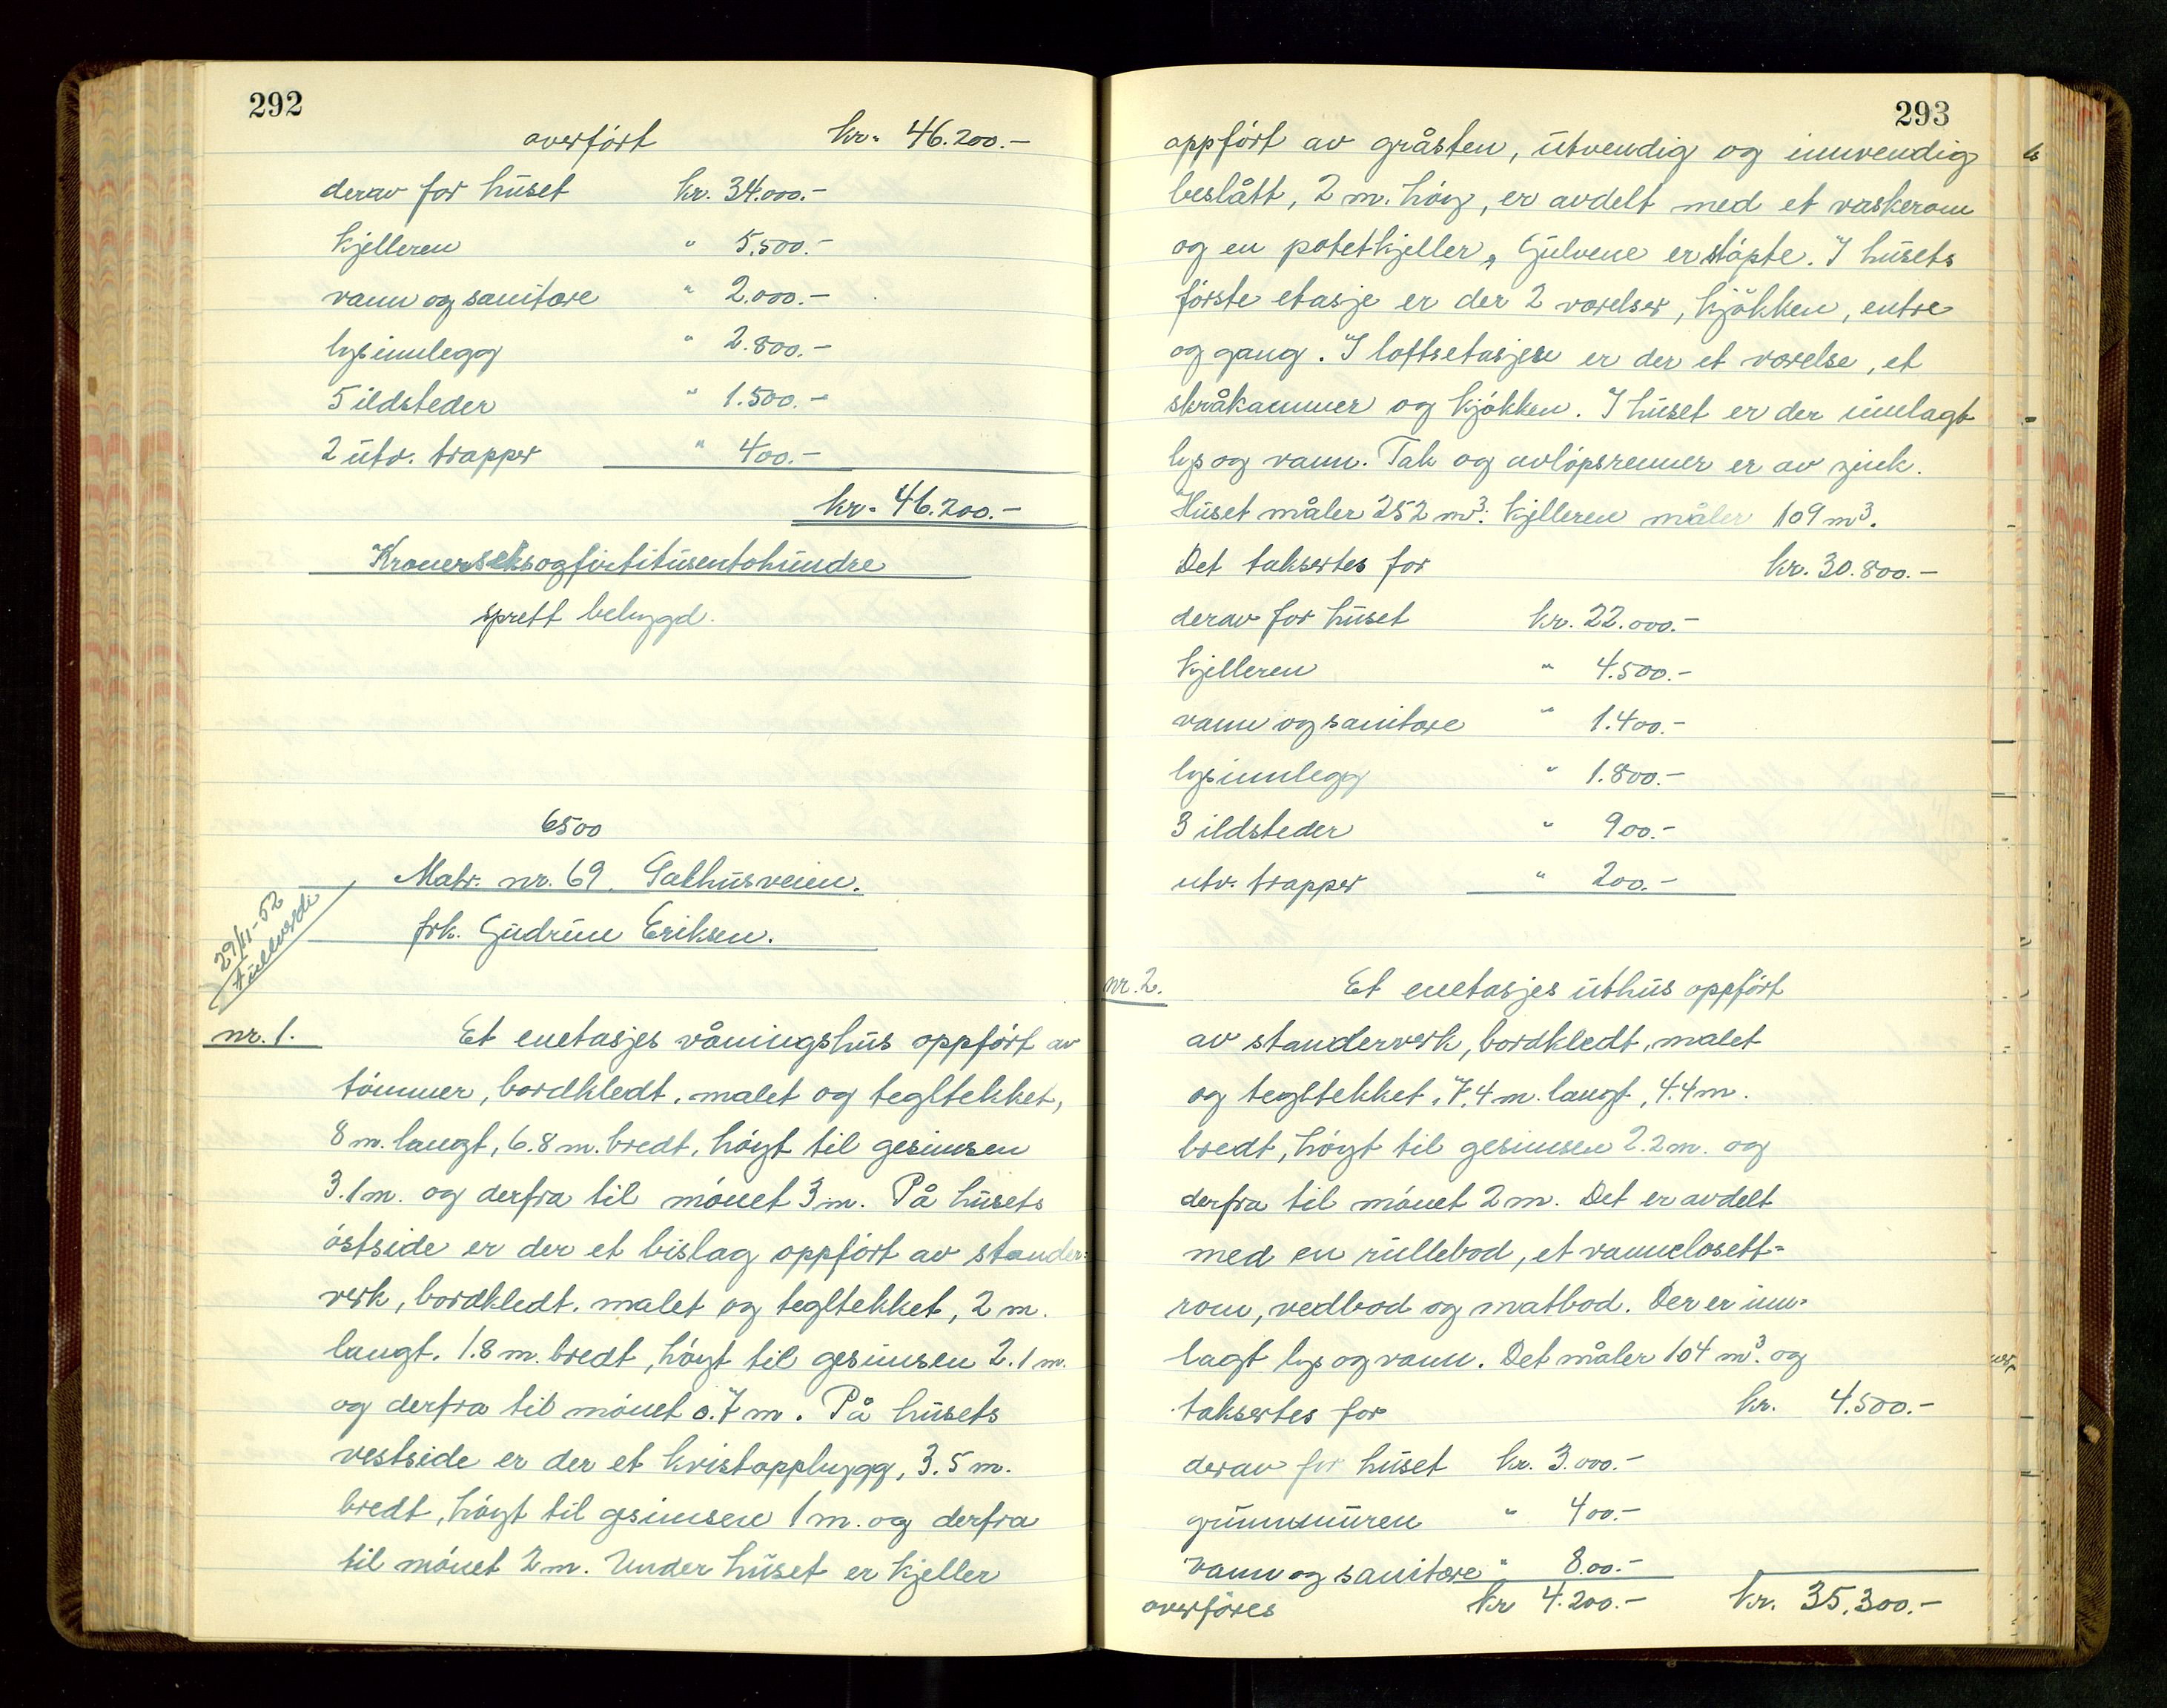 292
overført kr. 46.200.-
derav for huset kr. 34.000.-
kjelleren " 5.500.-
vann og sanitære " 2.000.-
lysinnlegg " 2.800.-
5 ildsteder " 1.500.-
2 utv. trapper " 400.-
kr. 46.200.-
Kronerseksogførtitusentohundre
sprett bebygd.
6500
Matr. nr. 69. Galhusveien.
frk. Gudrun Eriksen.
29/11-52
Fullverdi
nr. 1. Et enetasjes våningshus oppført av
tømmer, bordkledt, malet og tegltekket,
8 m. langt, 6.8 m. bredt, høyt til gesimsen
3.1 m. og derfra til mønet 3 m. På husets
østside er der et bislag oppført av stander=
verk, bordkledt, malet og tegltekket, 2 m.
langt, 1.8 m. bredt, høyt til gesimsen 2.1 m.
og derfra til mønet 0.7 m. På husets
vestside er der et kvistoppbygg, 3.5 m.
bredt, høyt til gesimsen 1 m. og derfra
til mønet 2 m. Under huset er kjeller
293
oppført av gråsten, utvendig og innvendig
beslått, 2 m. høy, er avdelt med et vaskerom
og en potetkjeller, Gulvene er støpte. I husets
første etasje er der 2 værelser, kjøkken, entre
og gang. I loftsetasjen er der et værelse, et
skråkammer og kjøkken. I huset er der innlagt
lys og vann. Tak og avløpsrenner er av zink.
Huset måler 252 m³. kjelleren måler 109 m³.
Det taksertes for kr. 30.800.-
derav for huset kr. 22.000.-
kjelleren " 4.500.-
vann og sanitære " 1.400.-
lysinnlegg " 1.800.-
3 ildsteder " 900.-
utv. trapper " 200.-
nr. 2. Et enetasjes uthus oppført
av standerverk, bordkledt, malet
og tegltekket, 7.4 m. langt, 4.4 m.
bredt, høyt til gesimsen 2.2 m. og
derfra til mønet 2 m. Det er avdelt
med en rullebod, et vannclosett=
rom, vedbod og matbod. Der er inn=
lagt lys og vann. Det måler 104 m³. og
taksertes for kr. 4.500.-
derav for huset kr. 3.000.-
grunnmuren " 400.-
vann og sanitære " 800.-
overføres kr 4.200.- kr. 35.300.-